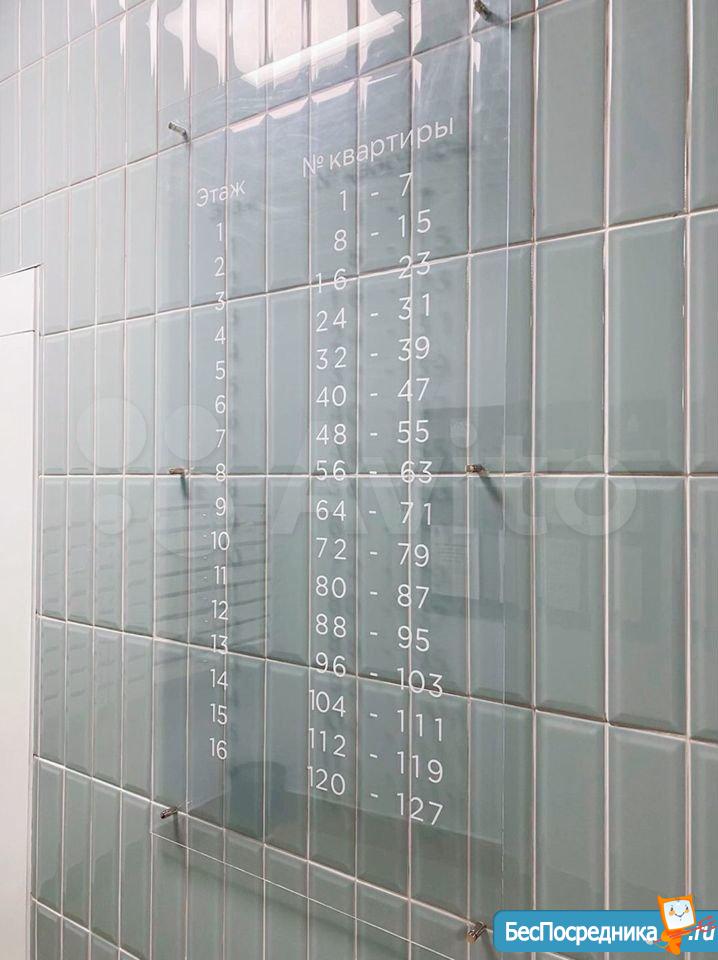 Этаж № квартиры
1 1 - 7
2 8 - 15
3 16 - 23
4 24 - 31
5 32 - 39
6 40 - 47
7 48 - 55
8 56 - 63
9 64 - 71
10 72 - 79
11 80 - 87
12 88 - 95
13 96 - 103
14 104 - 111
15 112 - 119
16 120 - 127
Avito
БесПосредника.ru